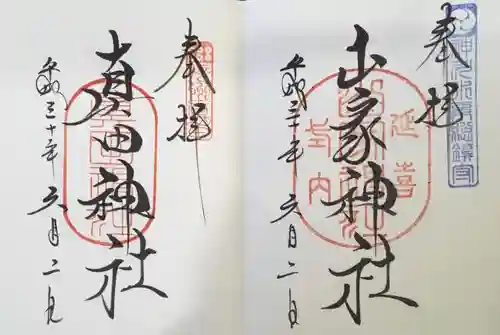 奉拝
山家神社
平成三十年六月二日
延喜
式内
奉拝
真田神社
平成三十年六月二日